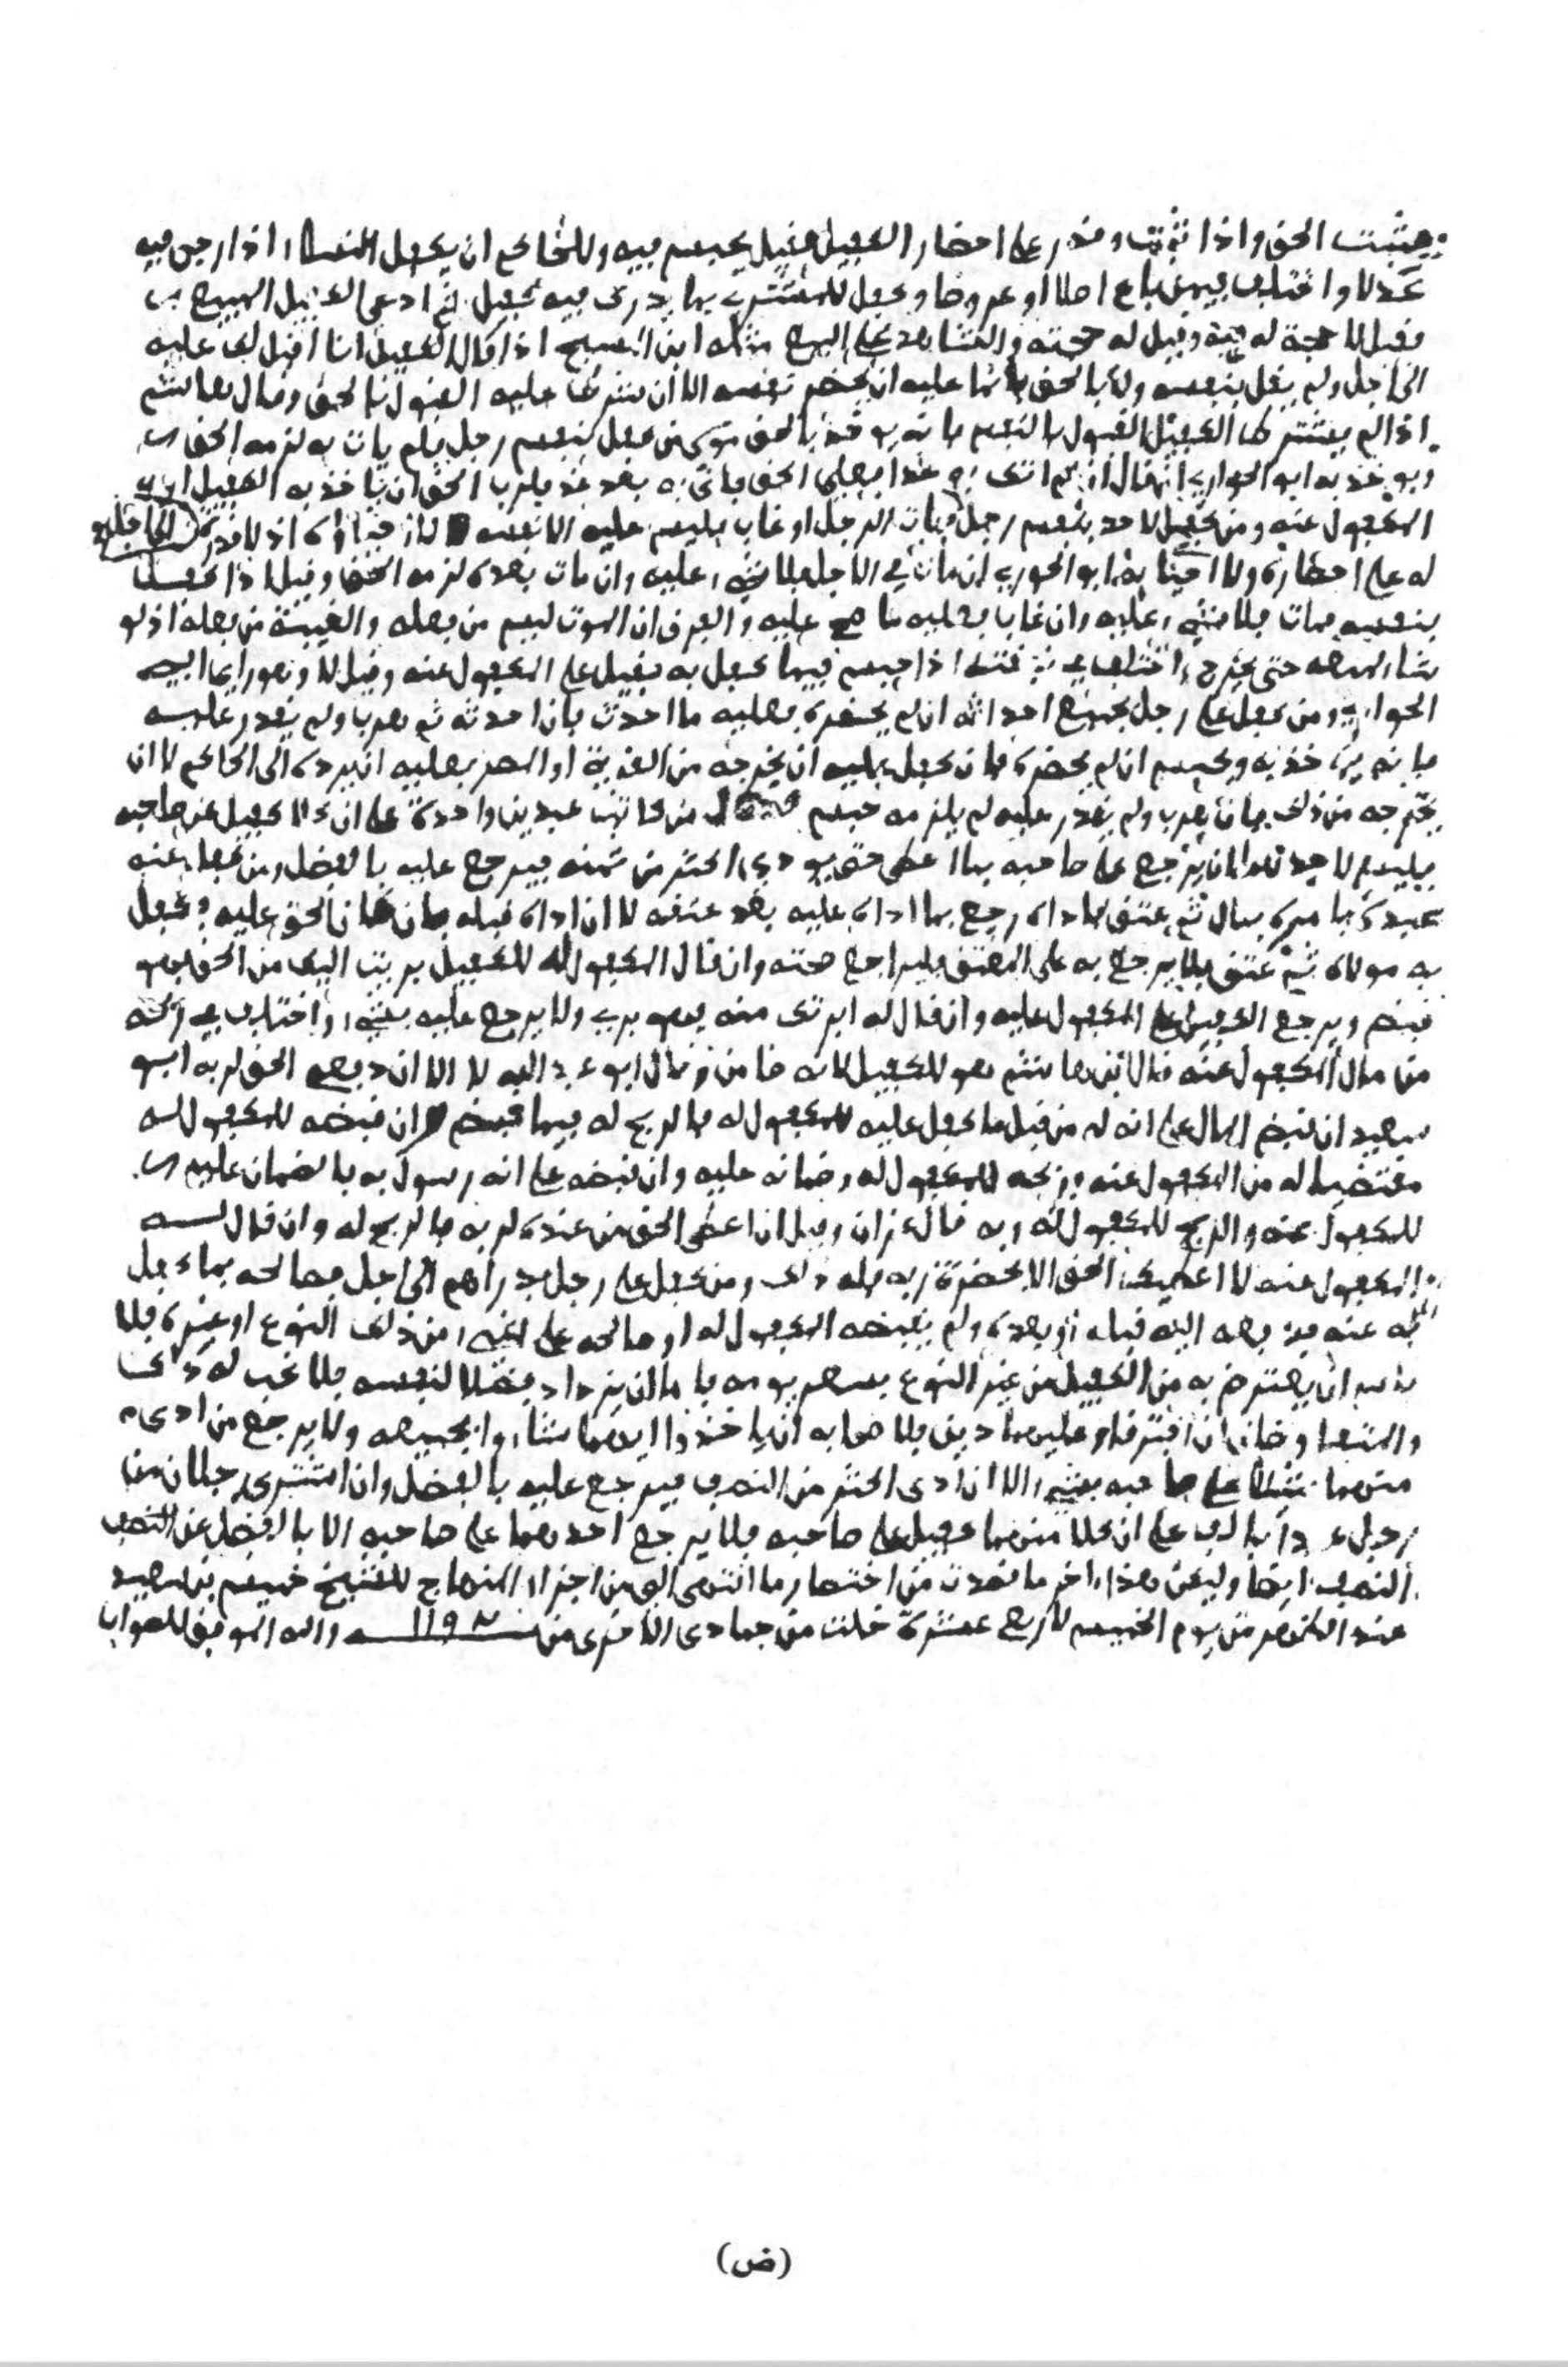 يثبت الحق واذا ثبت وقدر على احضار الكفيل فقيل يحبس فيه وللحاكم ان يكفل النساء اذا رجى فيه
عدلا واختلف فيمن باع اصلا او عروضا وكفل للمشتري بما يدركه فيه كفيل ثم ادعى الكفيل المبيع
فقيل لا حجة له فيه وقيل له حجته والمشاهد على البيع مثله ابن المسبح اذا قال الكفيل انا اقبل لك عليه
الى اجل ولم يقل بنفسه ولا بالحق فانما عليه ان يحضر نفسه الا ان شرط عليه القبول بالحق وقال هاشم
اذا لم يشترط الكفيل القبول بالنفس فانه يوخذ بالحق موسى من كفل بنفس رجل فلم يات به لزمه الحق
وبوخذ به ابو الحواري ان قال ان لم اتك به غدا فعلي الحق فاتى به بعد غد فلرب الحق ان ياخذ به الكفيل او
المكفول عنه ومن كفل لاحد بنفس رجل فمات الرجل او غاب فليس عليه الا نفسه اذ لا قدرة
له على احضاره ولا احيائه ابو الحوري ان مات في الاجل فلا شيء عليه وان مات بعده لزمه الحق وقيل اذا كفل
بنفسه فمات فلا شيء عليه وان غاب فعليه ما صح عليه والفرق ان الموت ليس من فعله والغيبة من فعله اذ لو
شاء لم حتى يخرج واختلف في نفقته اذا حبس فيما كفل به فقيل على المكفول عنه وقيل لا وهو راي ابي
الحواري ومن كفل على رجل بجميع احداثه ان لم يحضره فعليه ما احدث فان احدثه ثم هرب ولم يقدر عليه
فانه يوخذ به ويحبس ان لم يحضره فان كفل عليه ان يخرجه من القرية او المصر فعليه ان يرده الى الحاكم لا ان
يخرجه من ذلك فان هرب ولم يقدر عليه لم يلزمه حبس من كاتب عبدين واحدة على ان كلا كفيل عن صاحبه
فليس لاحدهما ان يرجع على صاحبه بما اعطى حتى يودي اكثر من ثمنه فيرجع عليه بالفضل ومن كفل عنه
عبده بامره بمال ثم عتق فاداه رجع بما اداه عليه بعد عتقه لا ان اداه قبله فان كان الحق عليه وكفل
به مولاه ثم عتق فلا يرجع به على المعتق فليراجع صحته وان قال المكفول له للكفيل بريت اليك من الحق فهو
قبض ويرجع الكفيل على المكفول عليه وان قال له ابرتك منه فهو بري ولا يرجع عليه بشيء واختلف في ربحه
من مال المكفول عنه قال ابن هاشم هو للكفيل لانه ضامن وقال ابو عبد الله لا الا ان دفع الحق لربه ابو
سعيد ان قبض المال على انه له من قبل ما كفل عليه للمكفول له فالربح له فيما قبض وان قبضه للمكفول له
مقتضيا له من المكفول عنه فربحه للمكفول له وضمانه عليه وان قبضه على انه رسول به فالضمان عليه
للمكفول عنه والربح للمكفول له وبه قال عزان وقيل ان اعطى الحق من عنده لربه فالربح له وان قال له
المكفول عنه لا اعطيك الحق الا بحضرة ربه فله ذلك ومن كفل على رجل بدراهم الى اجل فصالحه بما كفل
به عنه فدفعه اليه قبله او بعده ولم يقبضه المكفول له او صالحه على شيء من ذلك النوع او غيره فلا
باس ان يعترض به من الكفيل من غير النوع بسعر يومه فاما ان يزداد فضلا لنفسه فلا نحب له ذلك
والمتفاوضان ان افترقا وعليهما دين فلاصحابه ان ياخذوا ايهما شاءوا بجميعه ولا يرجع من ادى
منهما شيئا على صاحبه بشيء الا ان ادى اكثر من النصف فيرجع عليه بالفضل وان اشترى رجلان من
رجل عبدا بالف على ان كلا منهما كفيل على صاحبه فلا يرجع احدهما على صاحبه الا بالفضل عن النصف
النصف ايضا وليكن هذا اخر ما قصدت من اختصار ما انتهى الي من اجزاء المنهاج للشيخ خميس بن سعيد
عند العصر من يوم الخميس لاربع عشرة خلت من جمادى الاخرى من ١١٩٢ والله الموفق للصواب
(ض)